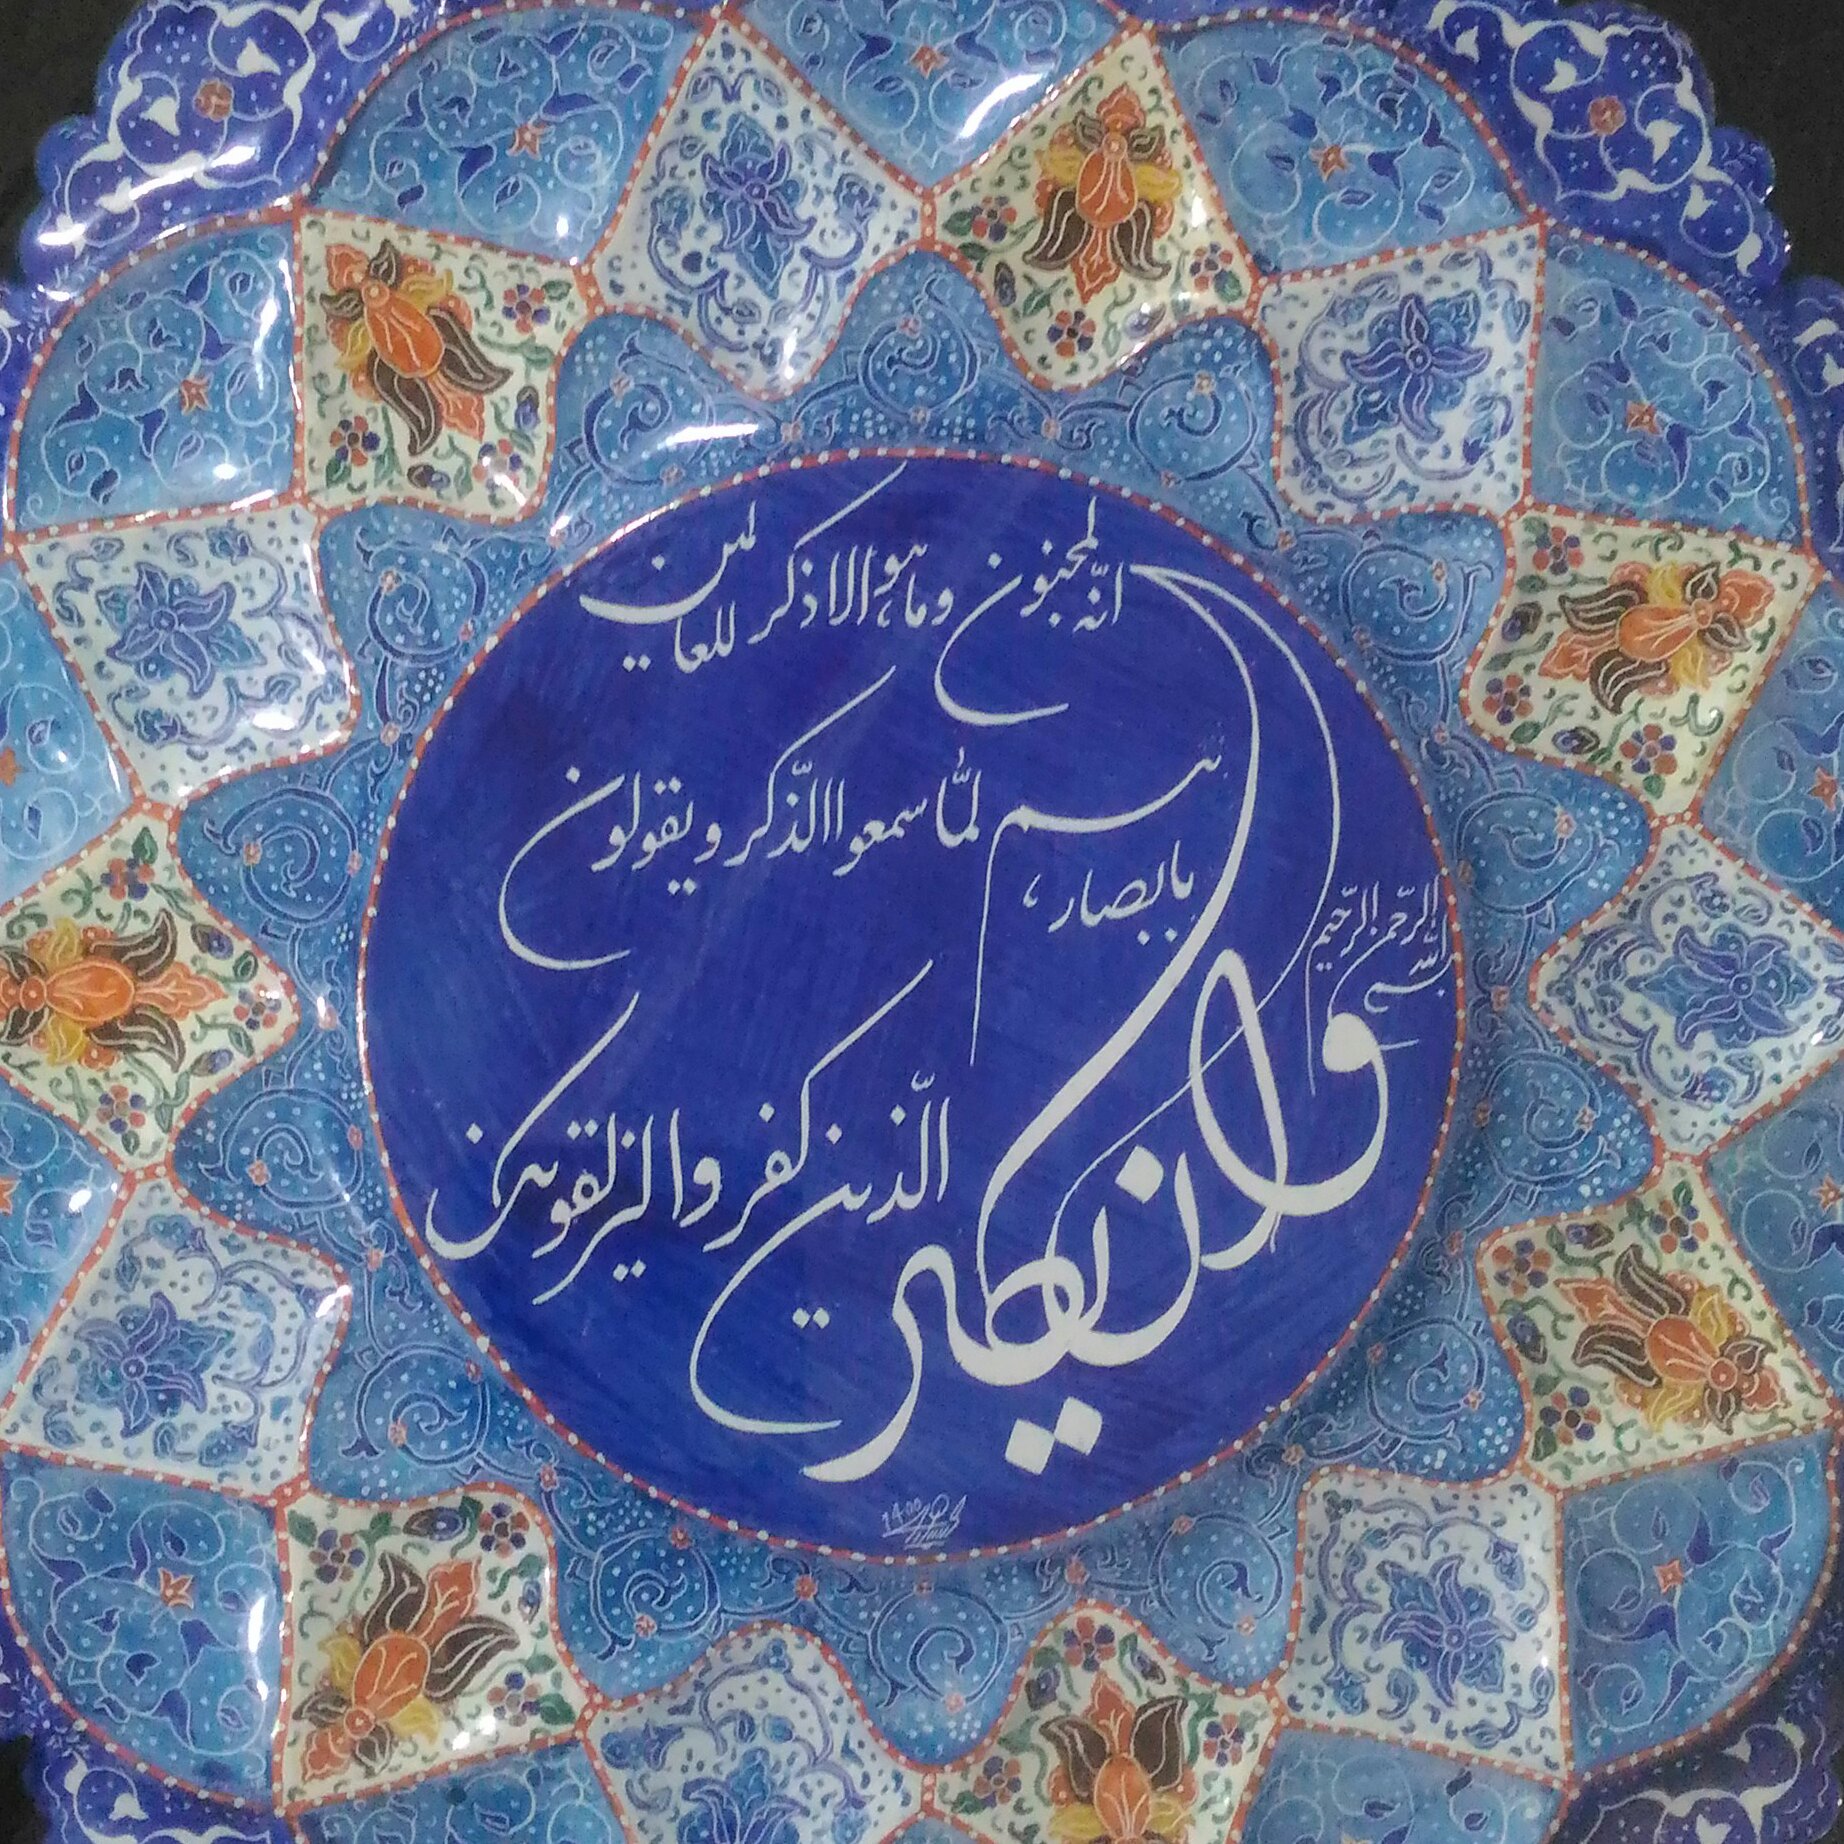 بسم الله
الرحمن الرحيم
وان يكاد
الّذين كفروا ليزلقونك
بابصارهم لمّا سمعوا الذّكر ويقولون
انّه لمجنون وما هو الا ذكر للعالمين